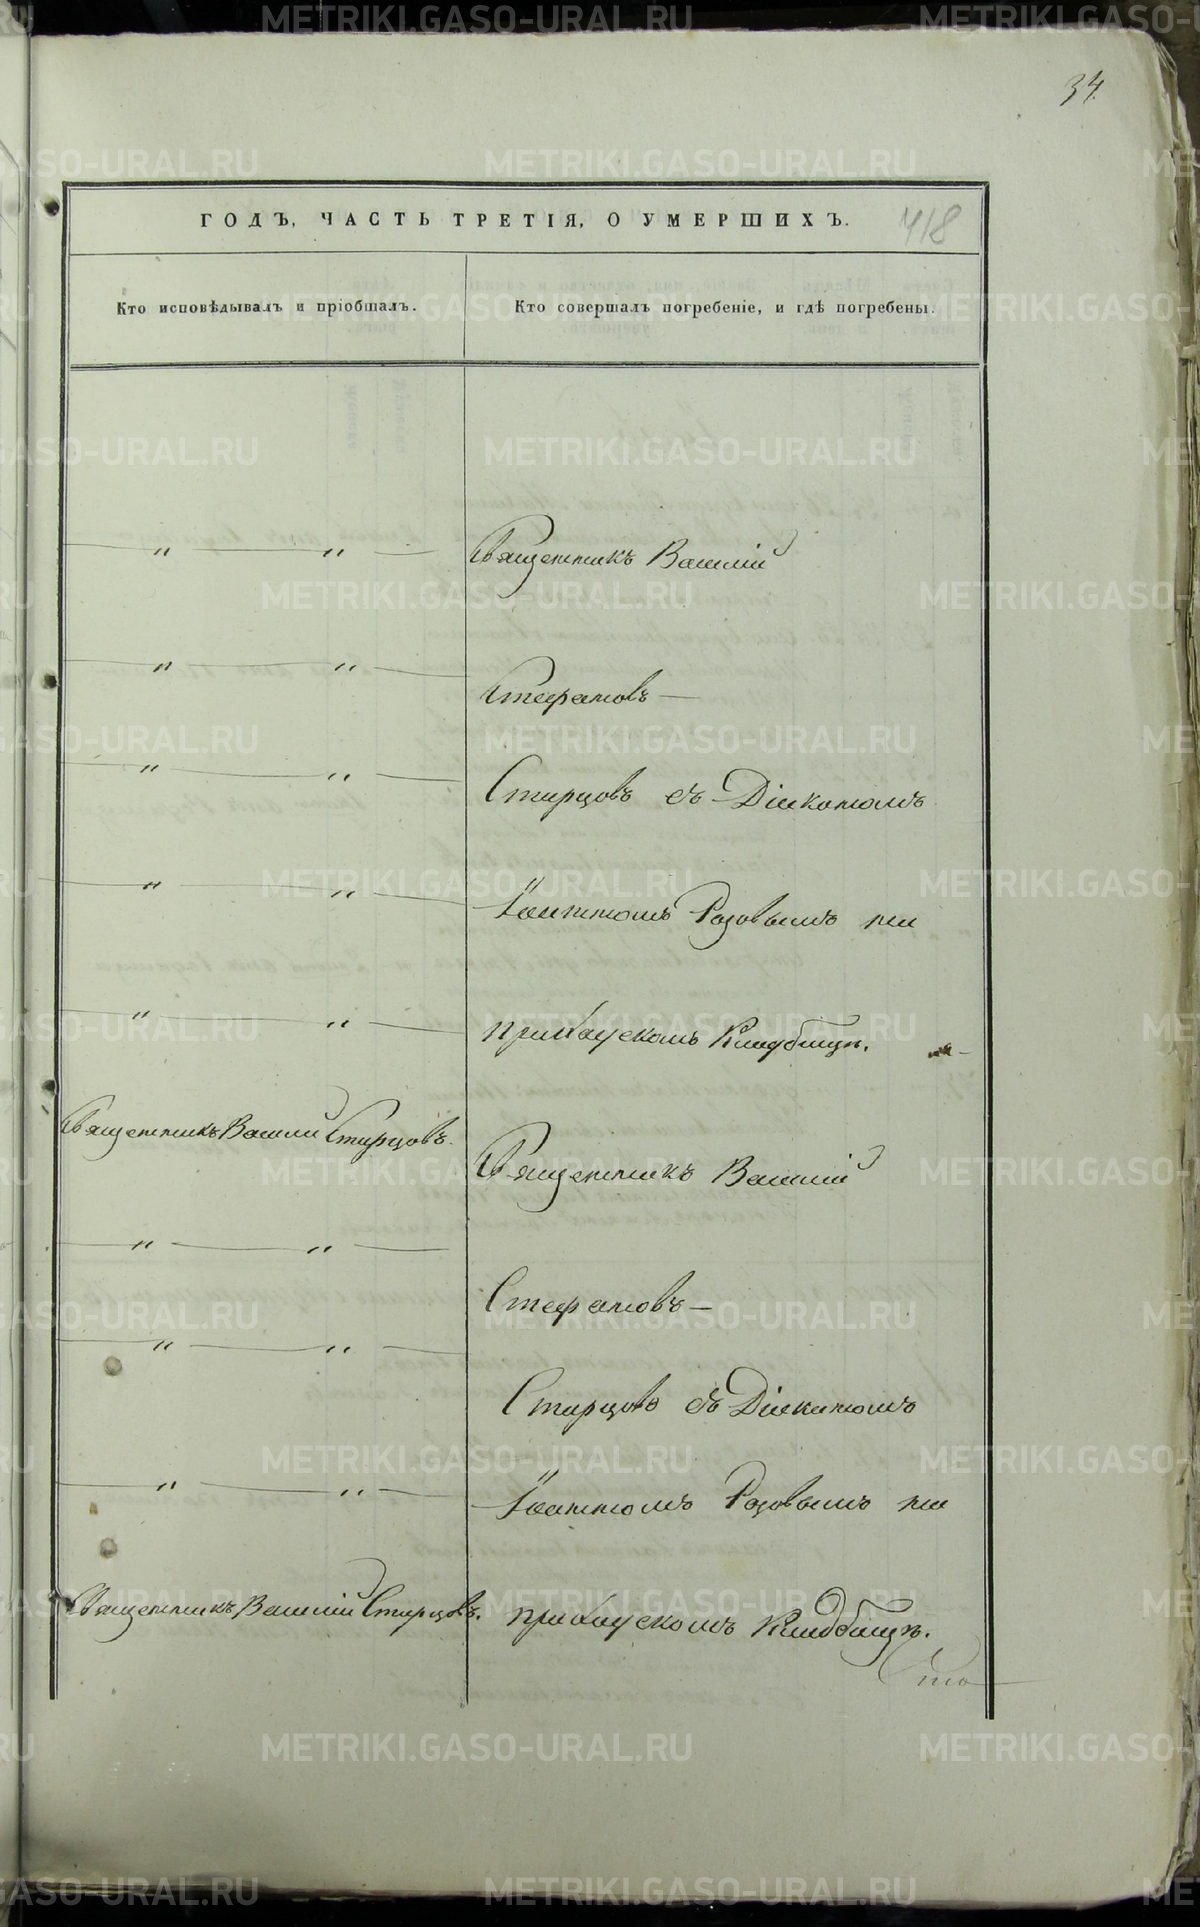 34.
ГОДЪ, ЧАСТЬ ТРЕТІЯ, О УМЕРШИХЪ.
418
Кто исповѣдывалъ и пріобщалъ.
Кто совершалъ погребеніе, и гдѣ погребены.
— " — " — Священникъ Василій
— " — " —
Стефановъ —
— " — " —
Старцовъ съ Діякономъ
— " — " —
Іоанномъ Розовымъ на
— " — " —
приходскомъ Кладбищѣ.
Священникъ Василій Старцовъ.
Священникъ Василій
— " — " —
Стефановъ —
— " — " —
Старцовъ съ Діякономъ
— " — " —
Іоанномъ Розовымъ на
Священникъ Василій Старцовъ.
приходскомъ Кладбищѣ.
METRIKI.GASO-URAL.RU